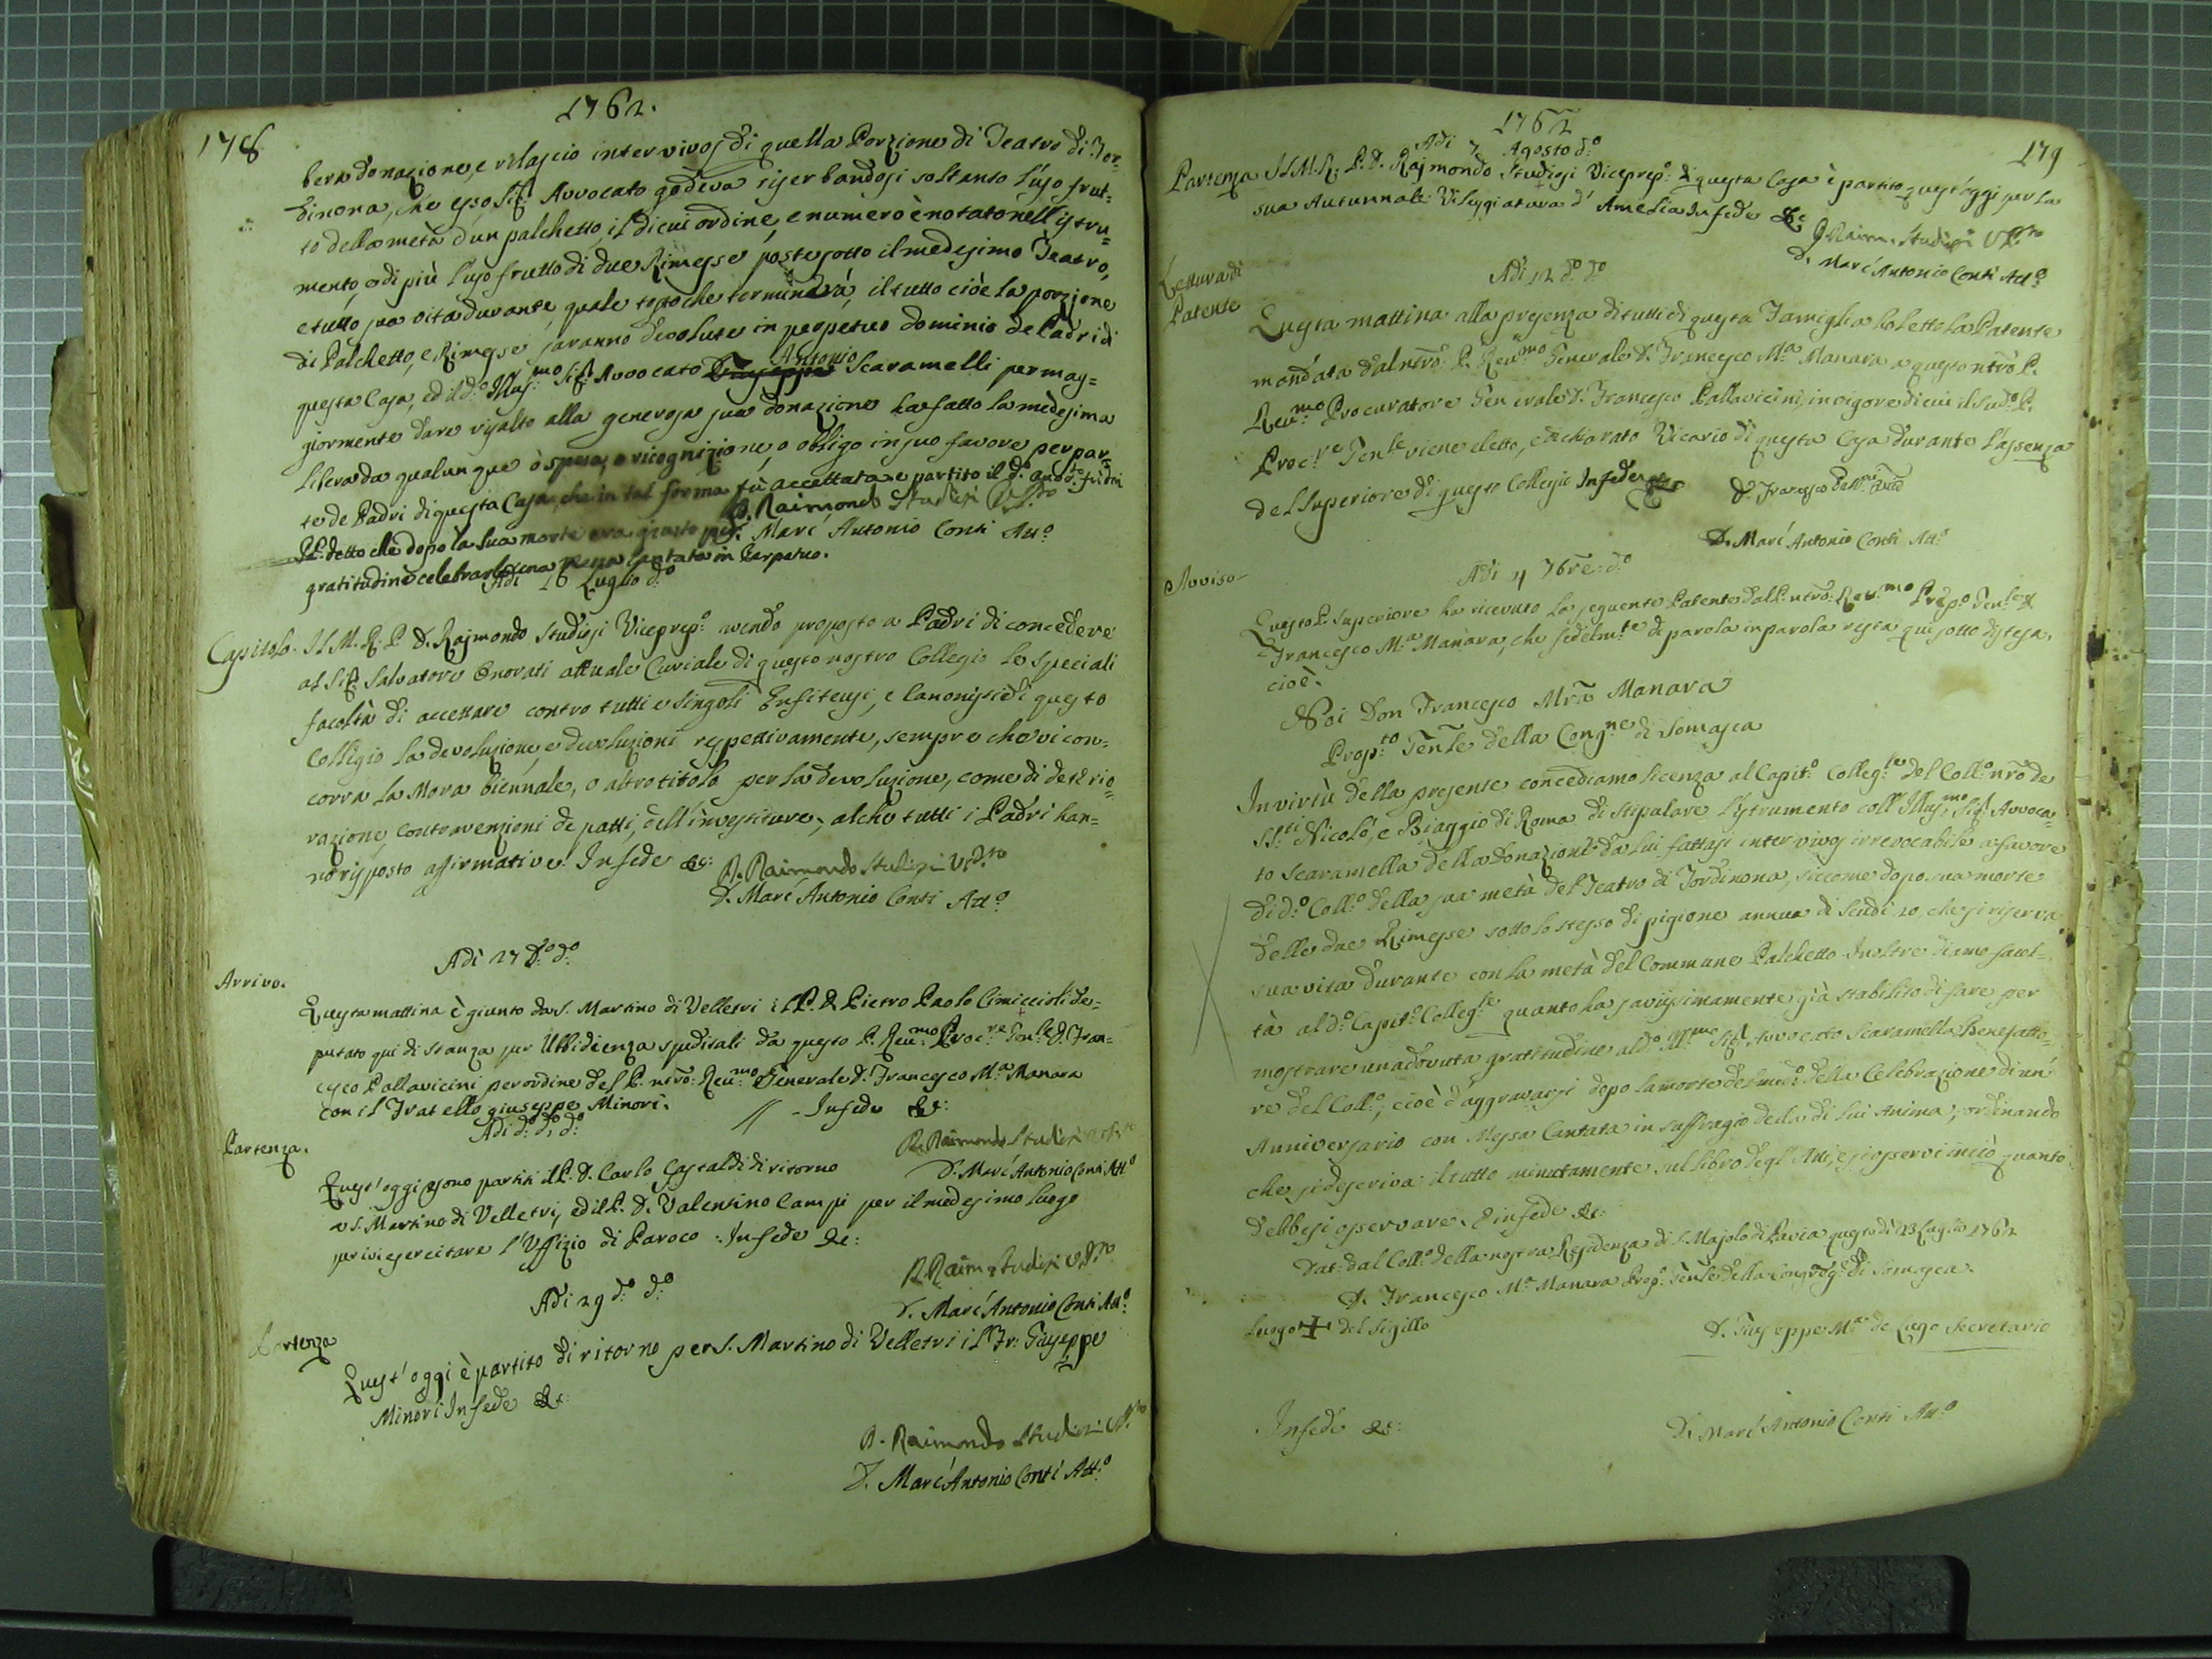 1762.
178
bera donazione, e rilascio inter vivos di quella Porzione di Teatro di Tor=
dinona, che esso Sig.r Avvocato godeva riserbandosi soltanto l'uso frut=
to della metà d'un palchetto, il di cui ordine, e numero è notato nell'istru=
mento, e di più l'uso frutto di due Rimesse poste sotto il medesimo Teatro,
e tutto sua vita durante, quale tosto che terminerà, il tutto cioè la porzione
di Palchetto, e Rimesse saranno devolute in perpetuo dominio de Padri di
questa Casa, ed il d.o Illus.mo Sig.r Avvocato Antonio Scaramelli per mag=
giormente dare risalto alla generosa sua donazione ha fatto la medesima
libera da qualunque ò spesa, o ricognizione, o obligo in suo favore per par=
te de Padri di questa Casa, che in tal forma fù accettata e partito il d.o
P. detto che dopo la sua morte era giusto per
gratitudine celebrarle una Messa Cantata in Perpetuo.
D. Raimondo Studiosi V.P.to
D. Marc'Antonio Conti Att.o
Adì 26 Luglio d.o
Capitolo. Il M. R. P. D. Rajmondo Studiosi Viceprep.o avendo proposto a Padri di concedere
al Sig.r Salvatore Onorati attuale Curiale di questo nostro Collegio le speciali
facoltà di accettare contro tutti e singoli Enfiteusi, e Canonisti di questo
Collegio la devoluzione, e devoluzioni respettivamente, sempre che vi con=
corra la Mora biennale, o altro titolo per la devoluzione, come di deterio=
razione, contravenzioni de patti, dell'investiture, al che tutti i Padri han=
no risposto affirmative. In fede &c:
D. Raimondo Studiosi V.P.to
D. Marc'Antonio Conti Att.o
Adì 27 d.o d.o
Arrivo.
Questa mattina è giunto da S. Martino di Velletri il P. D. Pietro Paolo Cimiccioli de=
putato qui di stanza per Ubbidienza speditali da questo P. Reu.mo Proc.re Gen.le D. Fran=
cesco Pallavicini per ordine del P. ntro: Reu.mo Generale D. Francesco M.a Manara
con il Fratello Giuseppe Minori. // - In fede &c:
Adì d.o d.o d.o
D. Raimondo Studiosi
D. Marc'Antonio Conti Att.o
Partenza.
Quest'oggi sono partiti il P. D. Carlo Gastaldi di ritorno
a S. Martino di Velletri, ed il P. D. Valentino Campi per il medesimo luogo
per ivi esercitare l'Uffizio di Paroco: In fede &c:
D. Raim. Studiosi V.P.to
D. Marc'Antonio Conti Att.o
Adì 29 d.o d.o
Partenza
Quest'oggi è partito di ritorno per S. Martino di Velletri il Fr: Giuseppe
Minori In fede &c:
D. Raimondo Studiosi V.P.to
D. Marc'Antonio Conti Att.o
1762
179
Adì 7 Agosto d.o
Partenza Il M. R. P. D. Rajmondo Studiosi Viceprep.o di questa Casa è partito quest'oggi per la
sua Autunnale Vileggiatura d'Amelia In fede &c
D. Raim. Studiosi V.P.to
D. Marc'Antonio Conti Att.o
Adì 12 d.o d.o
Lettura di
Patente
Questa mattina alla presenza di tutti di questa Famiglia ho letto la Patente
mandata dal ntro: P. Reu.mo Generale D. Francesco M.a Manara a questo ntro P.
Reu.mo Procuratore Generale D. Francesco Pallavicini, in vigore di cui il sud.o P.
Proc.re Gen.le viene eletto, e dichiarato Vicario di questa Casa durante l'assenza
del Superiore di questo Collegio In fede
D. Francesco Pall.ni
D. Marc'Antonio Conti Att.o
Avviso
Adì 4 7bre: d.o
Questo P. Superiore ha ricevuto la seguente Patente dal P. ntro: Reu.mo Prep.o Gen.le D.
Francesco M.a Manara, che fedelm.te di parola in parola resta qui sotto distesa.
cioè.
Noi Don Francesco Mra Manara
Prop.to Genle della Cong.ne di Somasca
In virtù della presente concediamo licenza al Capit.o Colleg.le del Coll.o nro de
SS.ti Nicolò, e Biaggio di Roma di stipulare l'istrumento coll'Illus.mo Sig.r Avvoca=
to Scaramella della Donazione da lui fattasi inter vivos irrevocabile a favore
di d.o Coll.o della sua metà del Teatro di Tordinona, siccome dopo sua morte
delle due Rimesse sotto lo stesso di pigione annua di Scudi 20, che si riserva
sua vita durante con la metà del Commune Palchetto. Inoltre diamo facol=
tà al d.o Capit.o Colleg.le quanto ha saviissimamente già stabilito di fare per
mostrare una dovuta gratitudine al d.o Ill.mo Sig.r Avvocato Scaramella Benefatto=
re del Coll.o, cioè d'aggravarsi dopo la morte del med.o della Celebrazione di un
Anniversario con Messa Cantata in suffragio della di lui Anima, ordinando
che si descriva il tutto minutamente sul libro degl'Atti, e si osservi in ciò quanto
debbesi osservare. E in fede &c:
Dat: dal Coll.o della nostra Residenza di S. Majolo di Pavia questo dì 23 Luglio 1762
D. Francesco M.a Manara Prep.o Genle della Congreg.e di Somasca.
Luogo ✠ del Sigillo
D. Giuseppe M.a de Lugo Secretario
In fede &c:
D. Marc'Antonio Conti Att.o